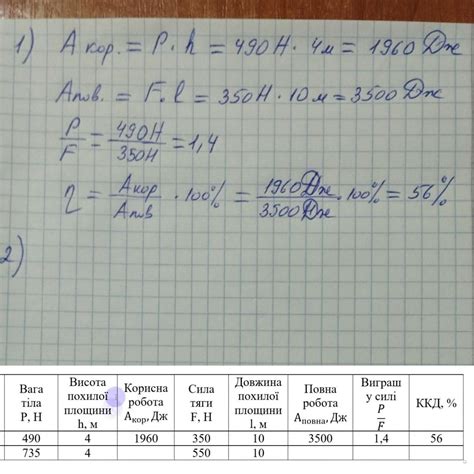 1) А кор. = P · h = 490Н · 4м = 1960 Дж
Апов. = F · l = 350Н · 10 м = 3500 Дж
P/F = 490Н/350Н = 1,4
η = Акор/Апов · 100% = 1960Дж/3500Дж · 100% = 56%
2)
Вага тіла P, Н | Висота похилої площини h, м | Корисна робота Aкор, Дж | Сила тяги F, Н | Довжина похилої площини l, м | Повна робота Aповна, Дж | Виграш у силі P/F | ККД, %
490 | 4 | 1960 | 350 | 10 | 3500 | 1,4 | 56
735 | 4 | 550 | 10